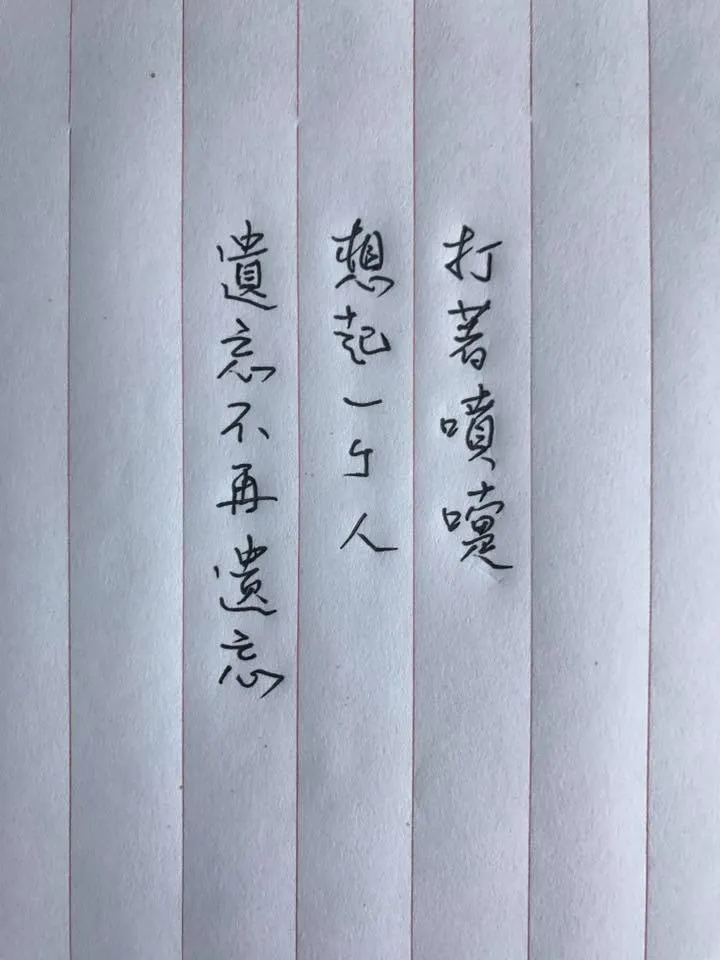 打著噴嚏
想起一个人
遺忘不再遺忘